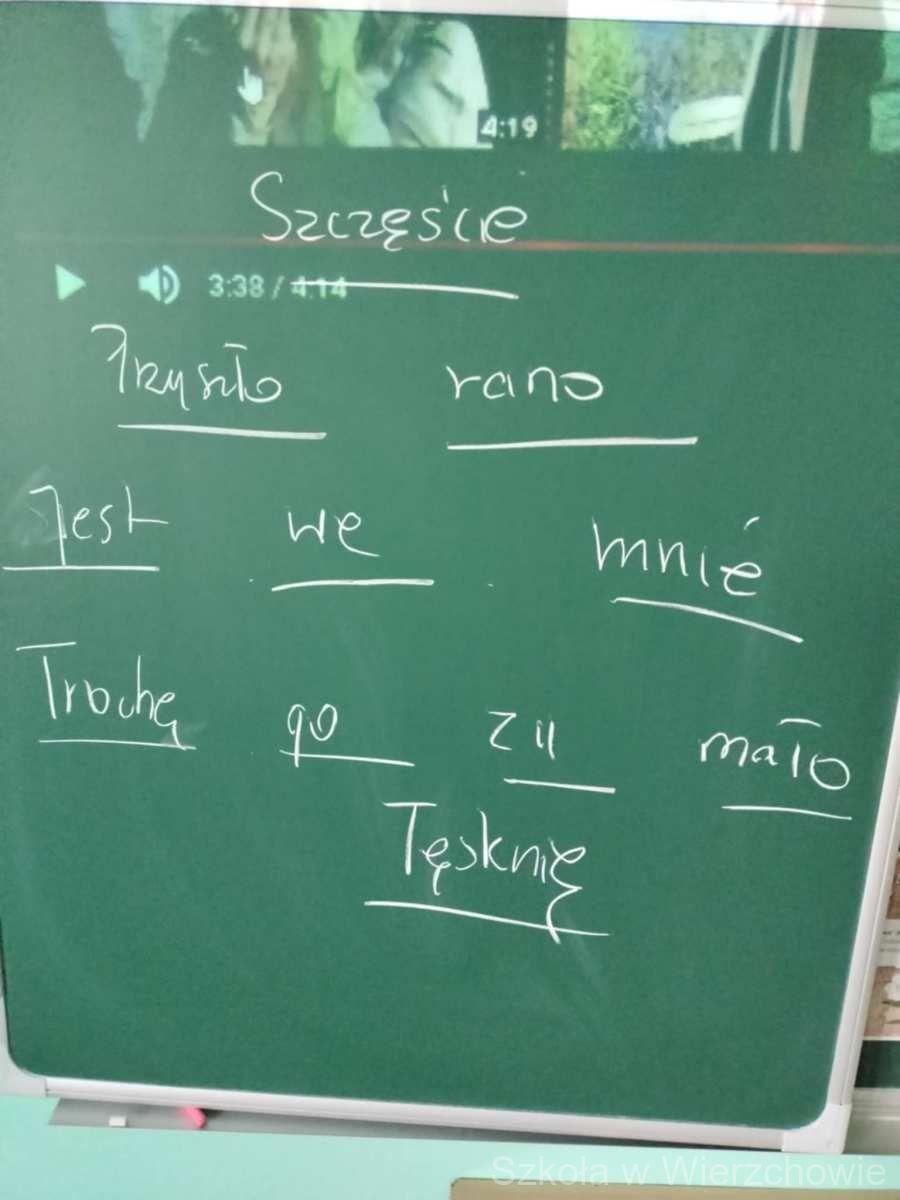 4:19
Szczęście
3:38 / 4:14
Przyszło rano
Jest we mnié
Trochę go zu mało
Tęsknię
Szkoła w Wierzchowie